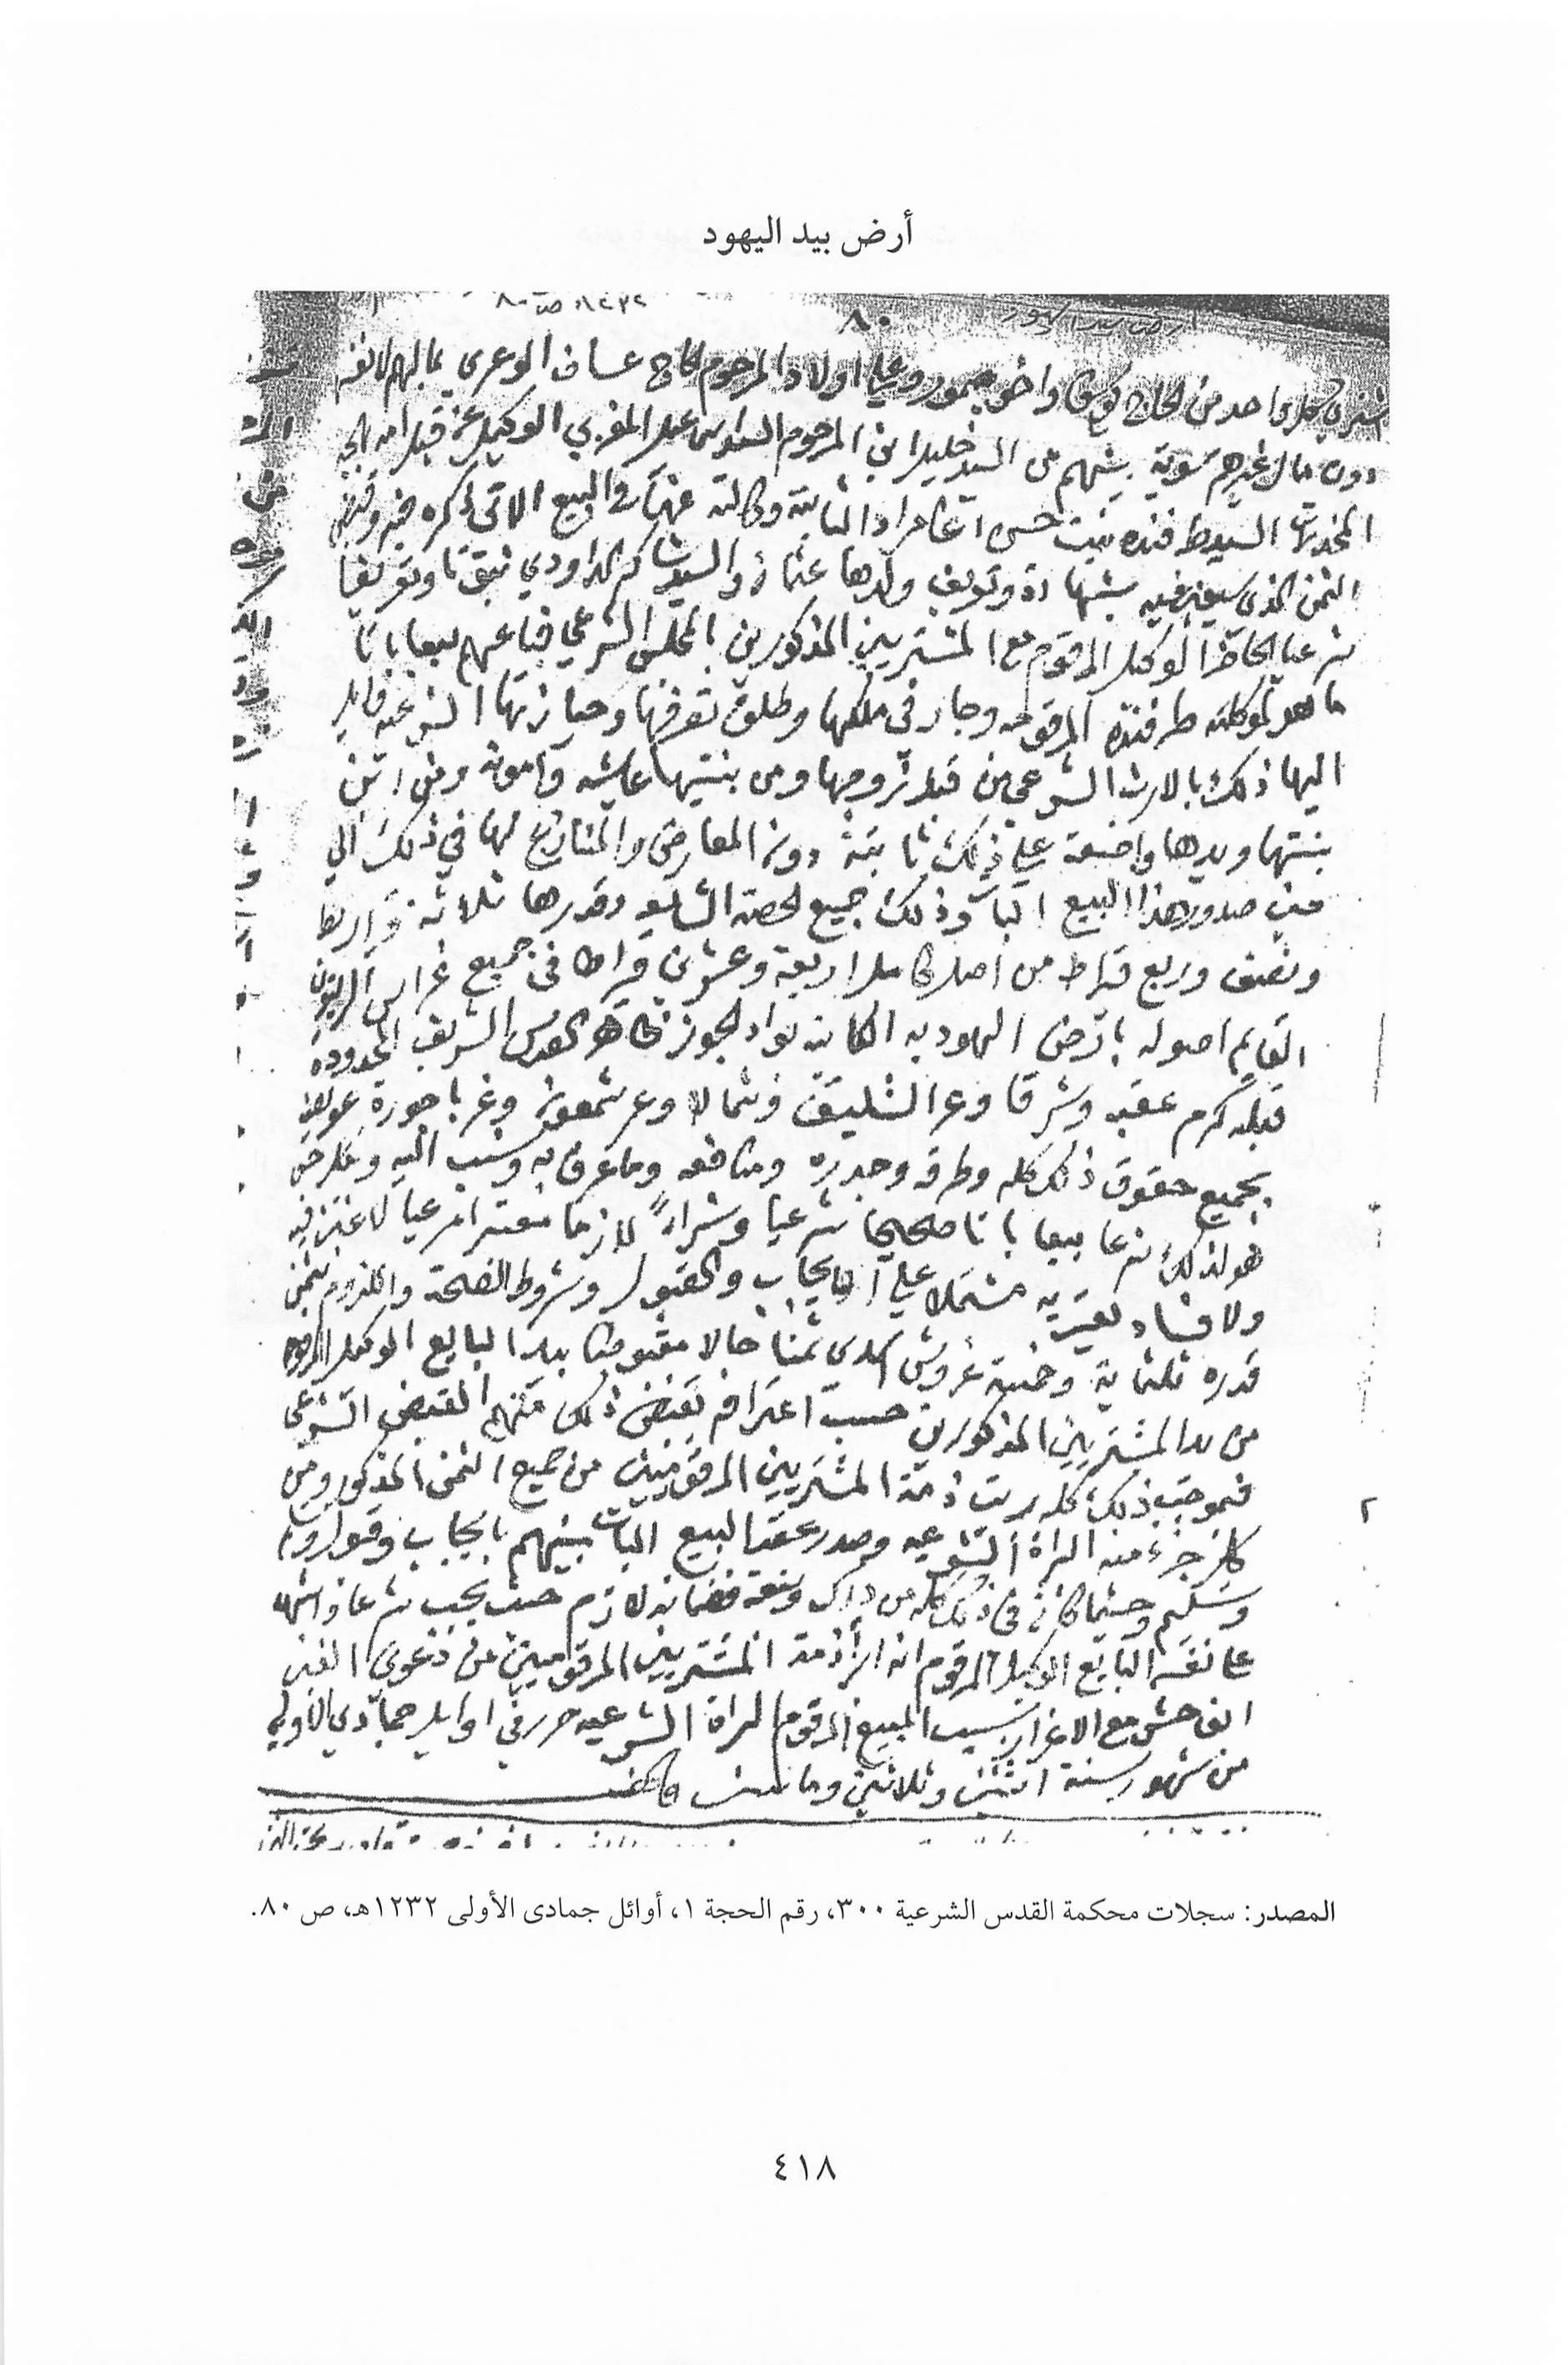 أرض بيد اليهود
١٢٣٢ ص ٨٠
٨٠
اشترى كل واحد من الحاج واخوه محمود وعلي اولاد المرحوم الحاج عساف الوعري بمالهم لانفسهم
دون مال غيرهم سوية بينهم من السيد خليل ابن المرحوم السيد المغربي الوكيل عن قبل امه
المخدرة السيدة طرفنده بنت حسن اغا مراد الثابتة وكالته عنها في البيع الاتي ذكره فيه وقبض
الثمن الذي سيعين فيه بشهادة وتعريف ولدها عثمان والسيد شاكر الداودي ثبوتا وتعريفا
شرعيا الحاضر الوكيل المرقوم مع المشتريين المذكورين بالمجلس الشرعي فباعهم بيعا باتا
ما هو لموكلته طرفنده المرقومه وجار في ملكها وطلق تصرفها وحيازتها الشرعيه وايل
اليها ذلك بالارث الشرعي من قبل زوجها ومن بنتيها عايشه وامونه ومن ابن
بنتها ويدها واضعة على ذلك ثابتة دون المعارض والمنازع لها في ذلك الى
حين صدور هذا البيع البات وذلك جميع الحصة الشايعه وقدرها ثلاثة قراريط
ونصف وربع قيراط من اصل كامل اربعة وعشرين قيراطا في جميع غراس الزيتون
القايم اصوله بارض اليهوديه الكاينه بواد الجوز ظاهر القدس الشريف المحدودة
قبلة كرم عقبه وشرقا وعر الشليق وشمالا وعر شمعون وغربا حورة
بجميع حقوق ذلك كله وطرقه وجدره ومنافعه وما عرف به ونسب اليه وبكل حق
هو لذلك شرعا بيعا باتا صحيحا شرعيا وشراءً لازما معتبرا مرعيا لا غبن فيه
ولا فساد يعتريه مشتملا على الايجاب والقبول وشروط الصحة واللزوم بثمن
قدره ثلثماية وخمسة غروش اسدي ثمنا حالا مقبوضا بيد البايع الوكيل المرقوم
من يد المشتريين المذكورين حسب اعترافه بقبض ذلك منهم القبض الشرعي
فبموجب ذلك كله برئت ذمة المشتريين المرقومين من جميع الثمن المذكور ومن
كل جزء منه البراة الشرعيه وصدر عقد البيع البات بينهم بايجاب وقبول
وتسليم وحيثما كان في ذلك كله من درك وتبعه فضمانه لازم حيث يجب شرعا واشهد
على نفسه البايع الوكيل المرقوم انه ابرأ ذمة المشتريين المرقومين من دعوى الغبن
الفاحش مع الاغرار بسبب المبيع المرقوم البراة الشرعيه حرر في اوايل جمادي الاولى
من شهور سنة اثنين وثلاثين ومايتين والف
المصدر: سجلات محكمة القدس الشرعية ٣٠٠، رقم الحجة ١، أوائل جمادى الأولى ١٢٣٢هـ، ص ٨٠.
٤١٨